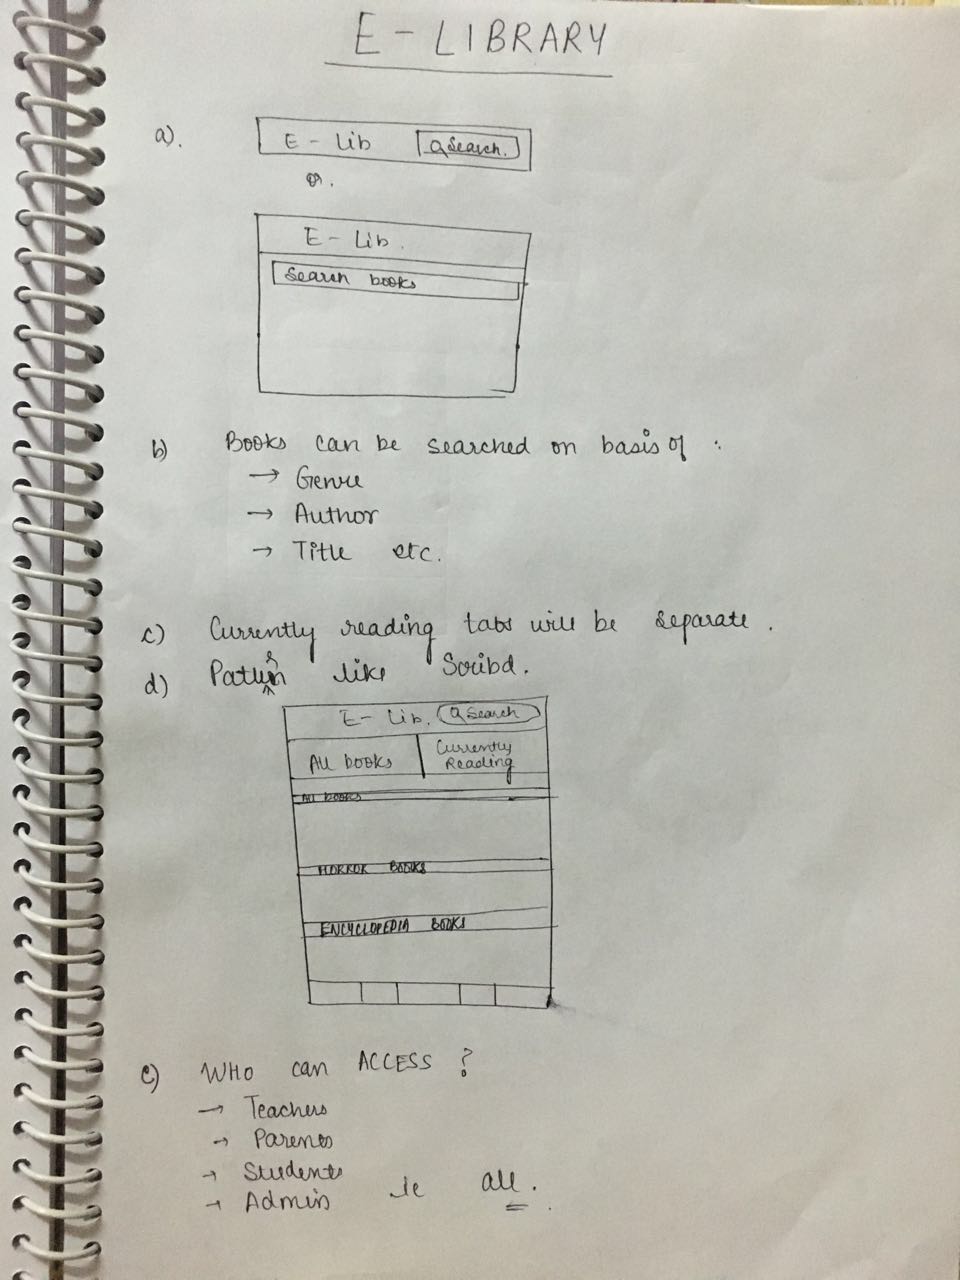 E - LIBRARY
a).
E - Lib Search.
or.
E - Lib.
Search books
b) Books can be searched on basis of :
→ Genre
→ Author
→ Title etc.
c) Currently reading tabs will be separate.
d) Pattern like Scribd.
E - Lib. Search
All books Currently Reading
All BOOKS
HORROR BOOKS
ENCYCLOPEDIA BOOKS
e) WHO can ACCESS ?
→ Teachers
→ Parents
→ Students
→ Admin ie all.